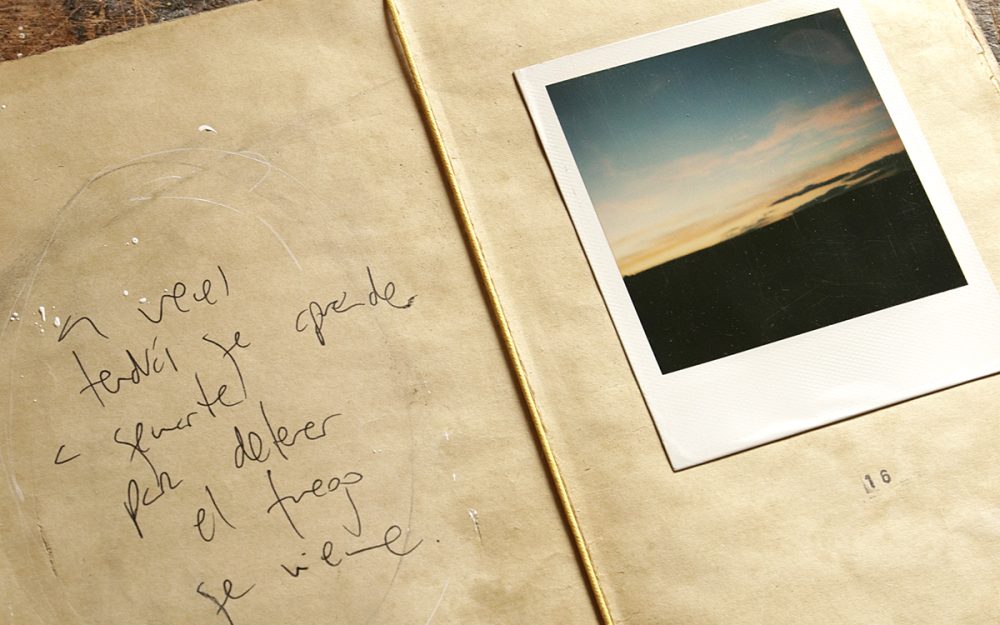 a veces
tendrás que aprender
a quemarte
para detener
el fuego
que viene.
16